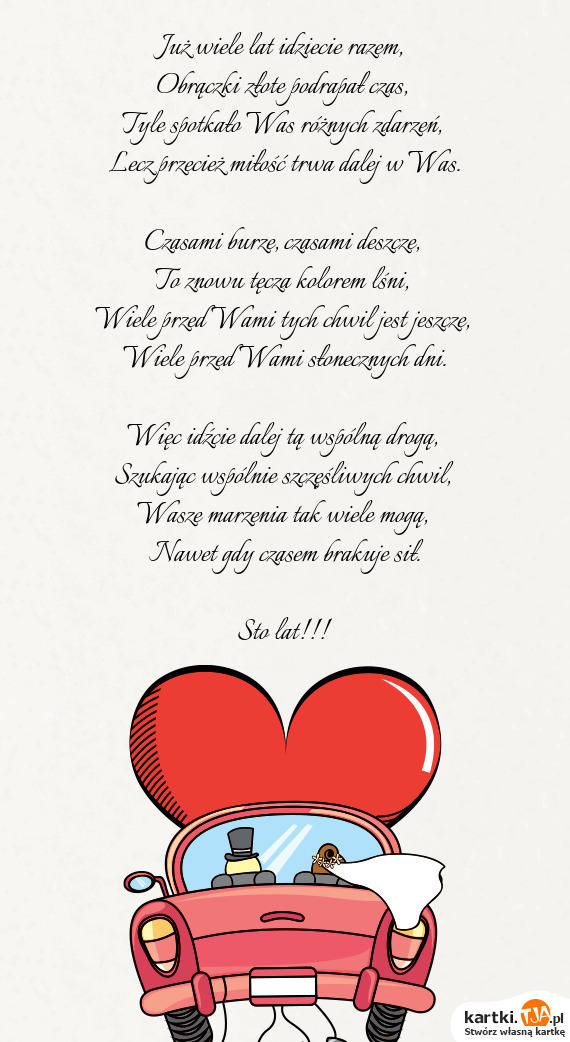 Już wiele lat idziecie razem,
Obrączki złote podrapał czas,
Tyle spotkało Was różnych zdarzeń,
Lecz przecież miłość trwa dalej w Was.
Czasami burze, czasami deszcze,
To znowu tęcza kolorem lśni,
Wiele przed Wami tych chwil jest jeszcze,
Wiele przed Wami słonecznych dni.
Więc idźcie dalej tą wspólną drogą,
Szukając wspólnie szczęśliwych chwil,
Wasze marzenia tak wiele mogą,
Nawet gdy czasem brakuje sił.
Sto lat!!!
kartki.TJA.pl
Stwórz własną kartkę